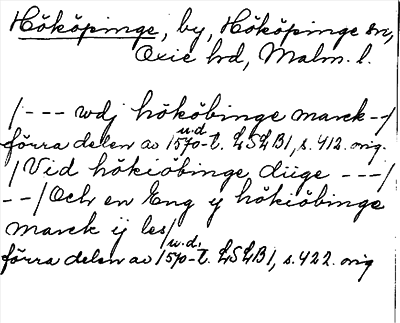 Hököpinge, by, Hököpinge sn,
Oxie hd, Malm. l.
/--- wdj hököbinge marck --/
u.d.
förra delen av 1570-t. LSLB1, s. 412. orig.
/Vid hökiöbinge diige ---/
--/Och en Eng ij hökiöbinge
marck ij les/
u.d.
förra delen av 1570-t. LSLB1, s. 422. orig